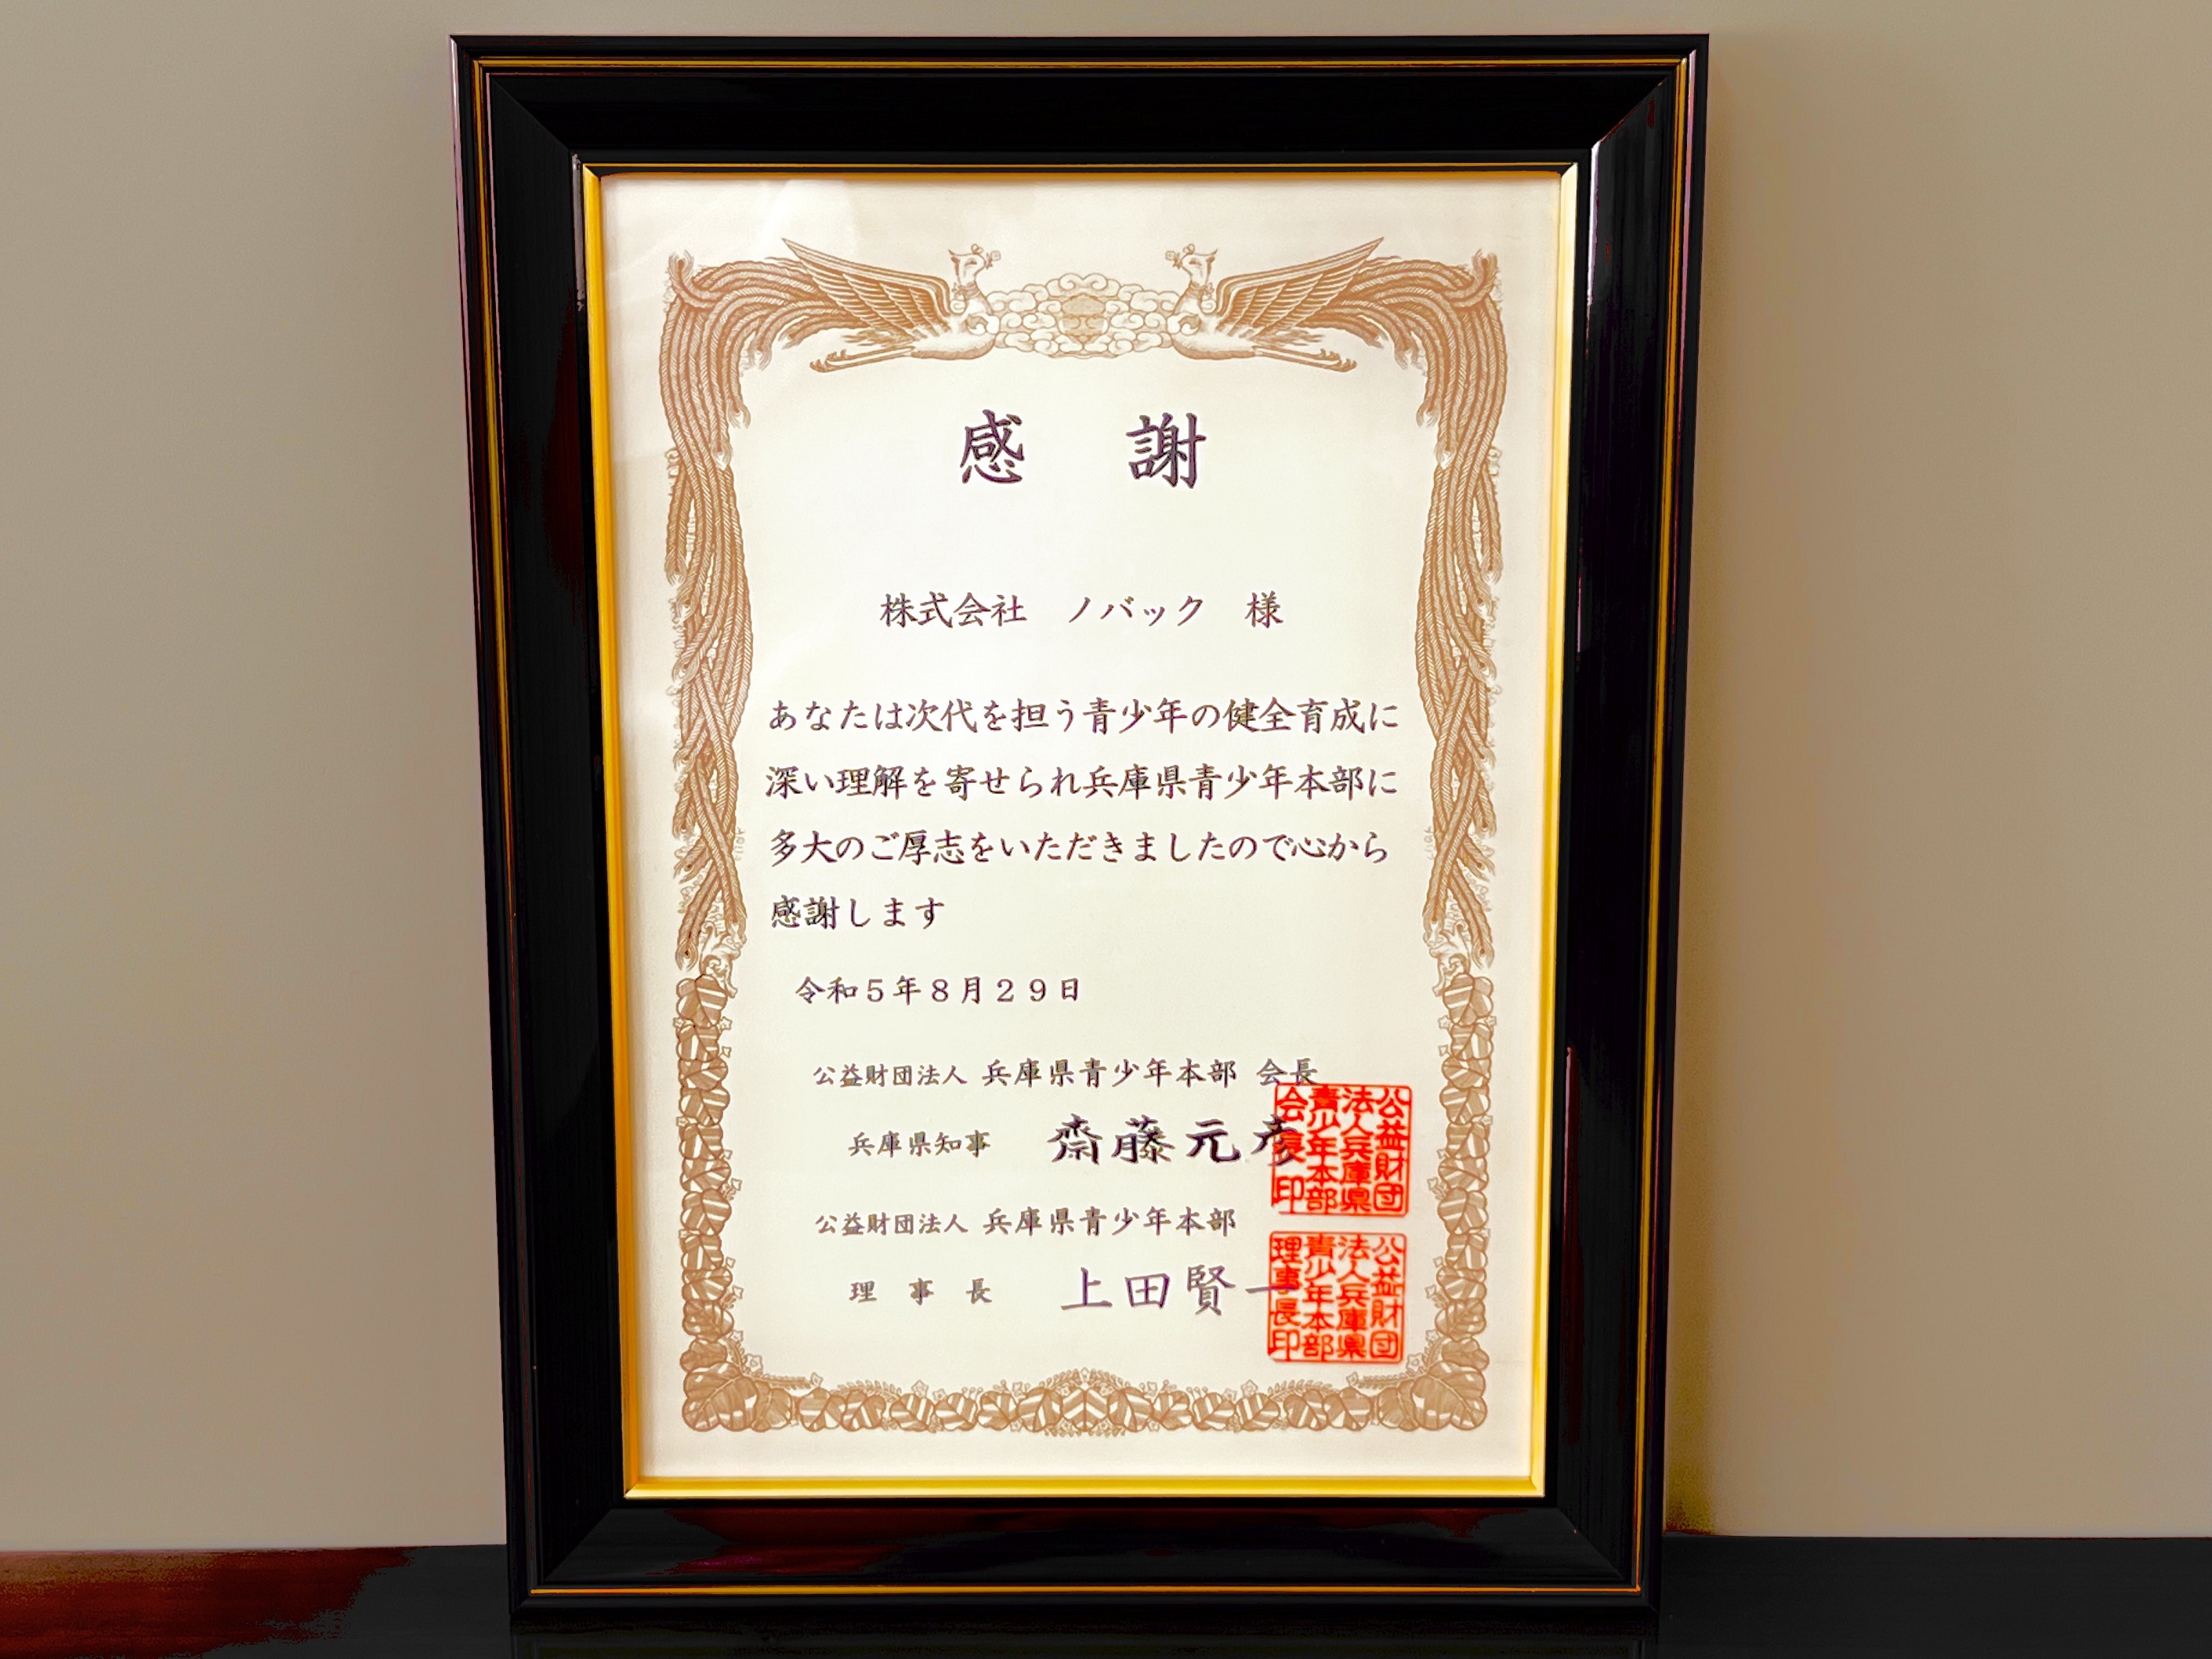 感 謝
株式会社 ノバック 様
あなたは次代を担う青少年の健全育成に
深い理解を寄せられ兵庫県青少年本部に
多大のご厚志をいただきましたので心から
感謝します
令和5年8月29日
公益財団法人 兵庫県青少年本部 会長
兵庫県知事 齋藤元彦
公益財団
法人兵庫県
青少年本部
会長印
公益財団法人 兵庫県青少年本部
理 事 長 上田賢一
公益財団
法人兵庫県
青少年本部
理事長印